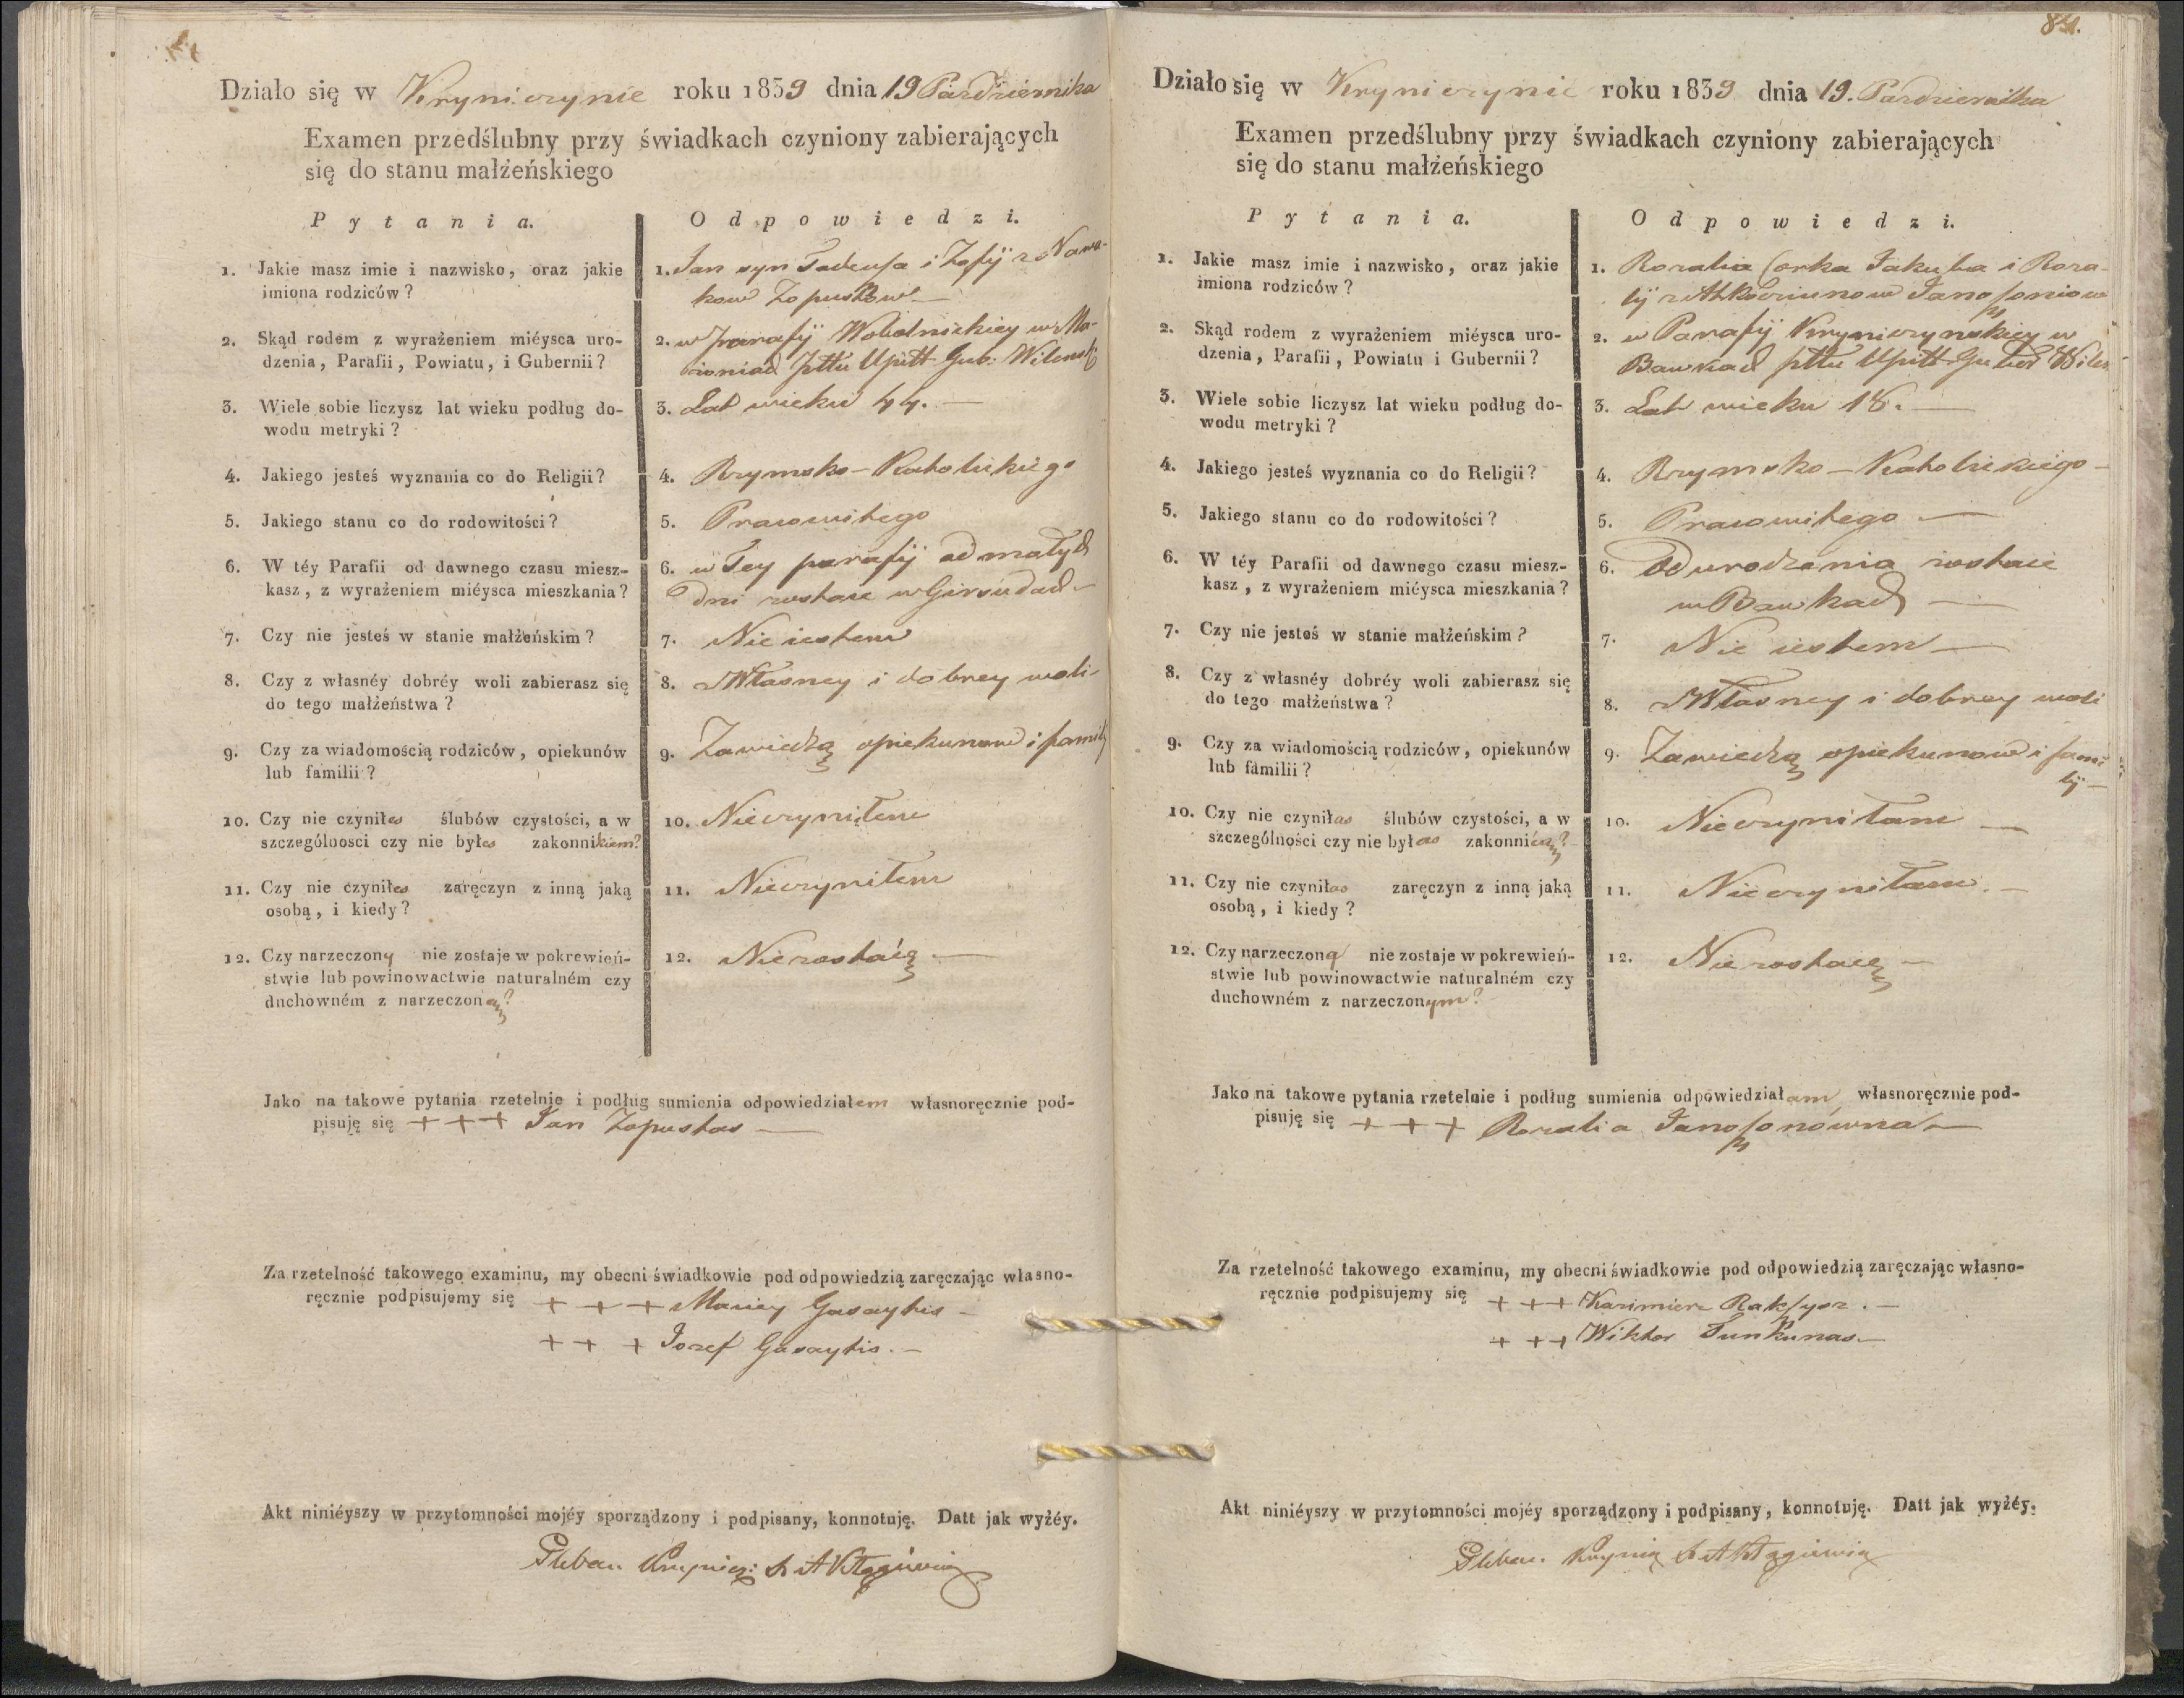 Działo się w Kryniczynie roku 1839 dnia 19 Pazdziernika
Examen przedślubny przy świadkach czyniony zabierających
się do stanu małżeńskiego
Pytania.
Odpowiedzi.
1. Jakie masz imie i nazwisko, oraz jakie
imiona rodziców?
1. Jan syn Tadeusza i Zofij z Nowa-
kow Zopustow
2. Skąd rodem z wyrażeniem miéysca uro-
dzenia, Parafii, Powiatu, i Gubernii?
2. w parafij Wobolnickiey w
Pttu Upitt Gub: Wilensk
3. Wiele sobie liczysz lat wieku podług do-
wodu metryki?
3. Lat wieku 44. —
4. Jakiego jesteś wyznania co do Religii?
4. Rzymsko - Katolickiego
5. Jakiego stanu co do rodowitości?
5. Pracowitego
6. W téy Parafii od dawnego czasu miesz-
kasz, z wyrażeniem miéysca mieszkania?
6. w Tey parafij od małych
dni zostaie w Girsudach
7. Czy nie jesteś w stanie małżeńskim?
7. Nie iestem
8. Czy z własnéy dobréy woli zabierasz się
do tego małżeństwa?
8. z Własney i dobrey woli-
9. Czy za wiadomością rodziców, opiekunów
lub familii?
9. Zawiedzą opiekunow i famili
10. Czy nie czyniłes ślubów czystości, a w
szczególnosci czy nie byłes zakonnikiem?
10. Nieczyniłem
11. Czy nie czyniłes zaręczyn z inną jaką
osobą, i kiedy?
11. Nieczyniłem
12. Czy narzeczony nie zostaje w pokrewień-
stwie lub powinowactwie naturalném czy
duchowném z narzeczoną?
12. Niezostaię —
Jako na takowe pytania rzetelnie i podług sumienia odpowiedziałem własnoręcznie pod-
pisuję się + + + Jan Zopustas —
Za rzetelność takowego examinu, my obecni świadkowie pod odpowiedzią zaręczając własno-
ręcznie podpisujemy się + + + Maciey Gasaytis -
+ + + Jozef Gasaytis. -
Akt niniéyszy w przytomności mojéy sporządzony i podpisany, konnotuję. Datt jak wyżéy.
Pleban
84.
Działo się w Kryniczynie roku 1839 dnia 19. Pazdziernika
Examen przedślubny przy świadkach czyniony zabierających
się do stanu małżeńskiego
Pytania.
Odpowiedzi.
1. Jakie masz imie i nazwisko, oraz jakie
imiona rodziców?
1. Rozalia Corka Jakuba i Roza-
lij z Janosoniow
2. Skąd rodem z wyrażeniem miéysca uro-
dzenia, Parafii, Powiatu i Gubernii?
2. w Parafij Kryniczynskiey w
Bawkach pttu Upitt Guber Wilen
3. Wiele sobie liczysz lat wieku podług do-
wodu metryki?
3. Lat wieku 18. —
4. Jakiego jesteś wyznania co do Religii?
4. Rzymsko - Katolickiego -
5. Jakiego stanu co do rodowitości?
5. Pracowitego —
6. W téy Parafii od dawnego czasu miesz-
kasz, z wyrażeniem miéysca mieszkania?
6. Od urodzenia zostaie
w Bawkach —
7. Czy nie jesteś w stanie małżeńskim?
7. Nie iestem —
8. Czy z własnéy dobréy woli zabierasz się
do tego małżeństwa?
8. z Własney i dobrey woli
9. Czy za wiadomością rodziców, opiekunów
lub familii?
9. Zawiedzą opiekunow i fami
lij —
10. Czy nie czyniłas ślubów czystości, a w
szczególności czy nie byłas zakonnicą?
10. Nieczyniłam —
11. Czy nie czyniłas zaręczyn z inną jaką
osobą, i kiedy?
11. Nieczyniłam. -
12. Czy narzeczoną nie zostaje w pokrewień-
stwie lub powinowactwie naturalném czy
duchowném z narzeczonym?
12. Niezostaię —
Jako na takowe pytania rzetelnie i podług sumienia odpowiedziałam własnoręcznie pod-
pisuję się + + + Rozalia Janosonówna —
Za rzetelność takowego examinu, my obecni świadkowie pod odpowiedzią zaręczając własno-
ręcznie podpisujemy się + + + Kazimierz Raksysz. -
+ + + Wiktor Tunkunas —
Akt niniéyszy w przytomności mojéy sporządzony i podpisany, konnotuję. Datt jak wyżéy.
Pleban